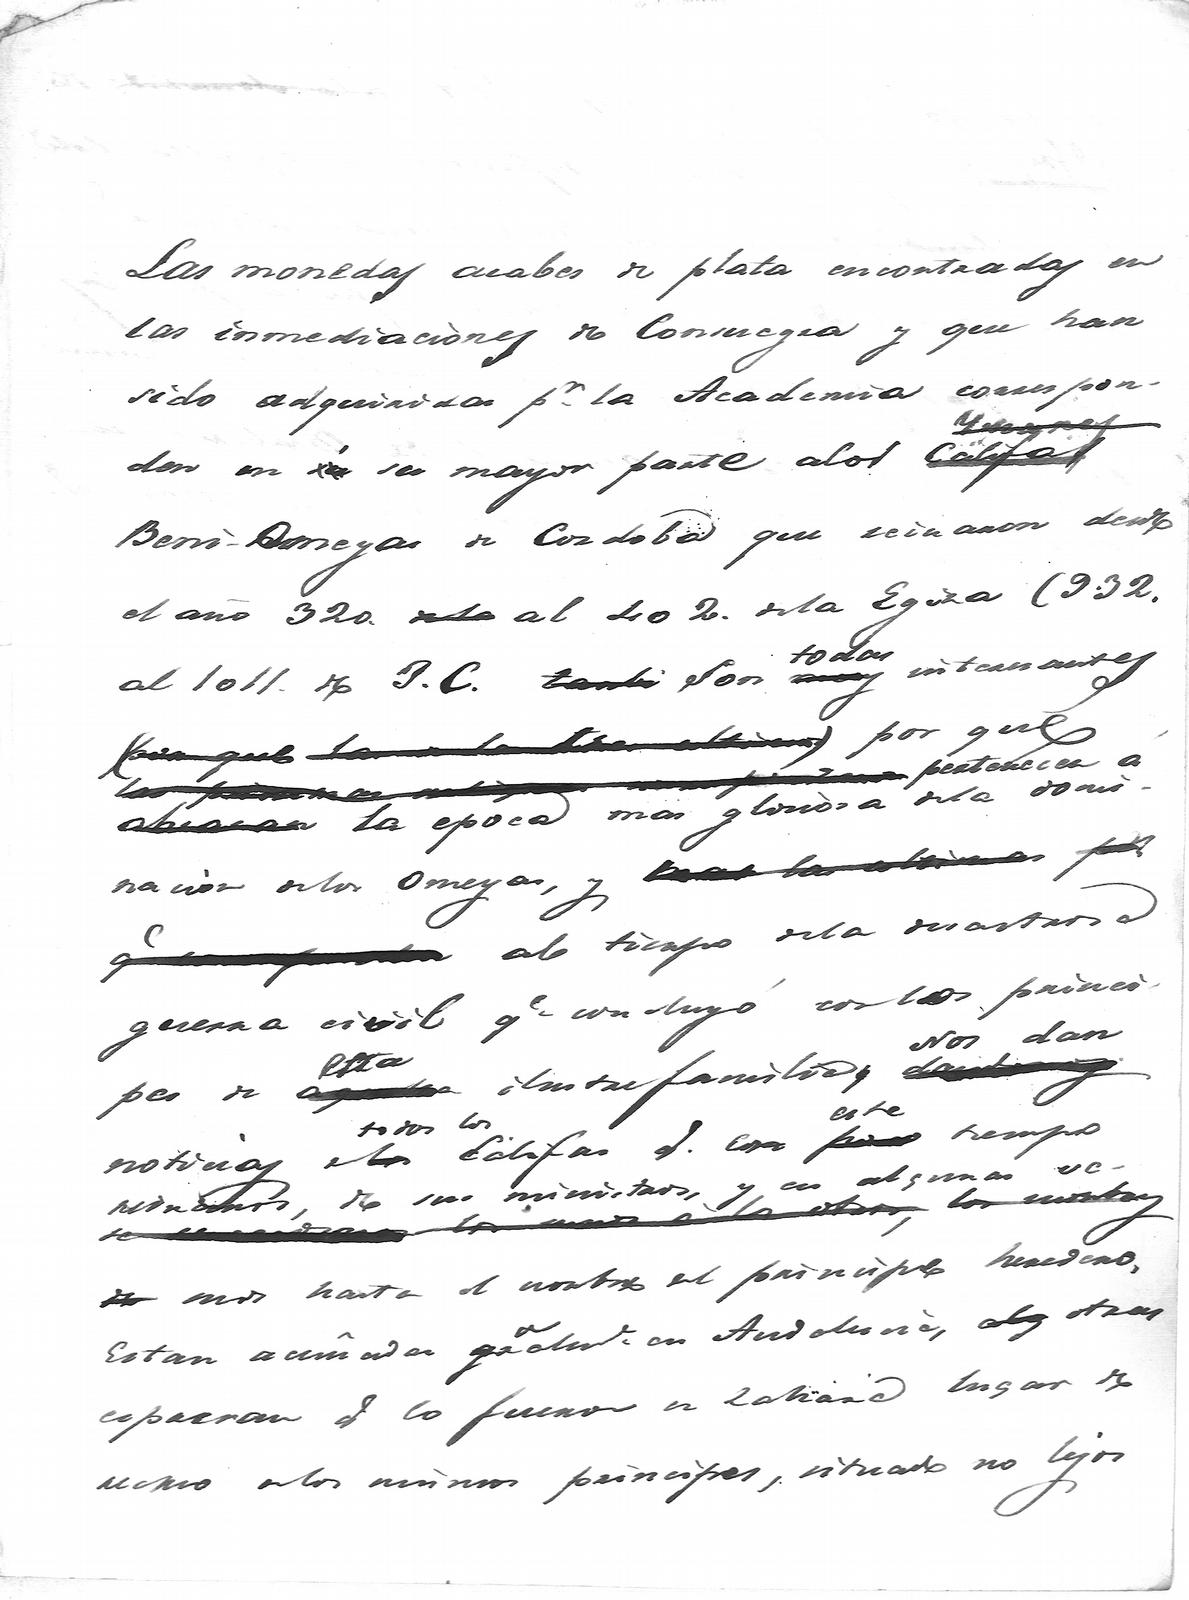 Las monedas arabes de plata encontradas en
las inmediaciones de Consuegra y que han
sido adquiridas pr. la Academia correspon-
den en su mayor parte alos Califas
Beni-Omeyas de Cordoba que reinaron desde
el año 320. dela al 402. dela Egira (932.
al 1011. de J.C. tambi Son todas muy interesantes
(por que las ultimas) por que
las primeras pertenecen á
abrazan la epoca mas gloriosa dela domi-
nacion delos Omeyas, y las ultimas
qe al tiempo dela desastrosa
guerra civil qe concluyó con los princi-
pes de esta ilustre familia, nos dan
noticias de todos los Califas q. en este poco tiempo
reinaron, de sus ministros, y en algunas ve-
se los unos á los otros, los nombres
de mos hasta el nombre del principe heredero.
Estan acuñadas gralmte. en Andalucia, alg otras
espresan q lo fueron en Zahara lugar de
recreo delos mismos principes, situado no lejos